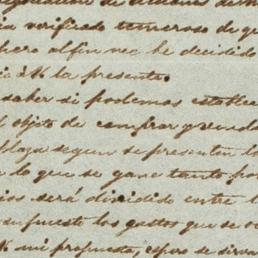 ia verificado temeroso de qu
pero al fin me he decidido
la presente.
saber si podemos establec
el objeto de comprar y vende
plaza segun se presenten l
lo que se gane tanto po
ios será dividido entre l
supuesto los gastos que se o
mi propuesta, espero se sirva